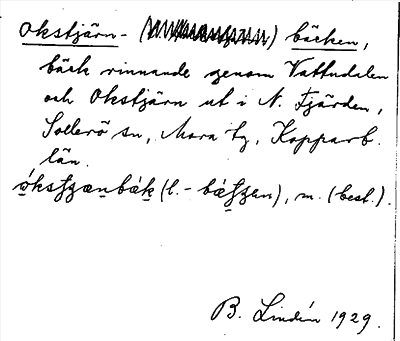 Okstjärn- () bäcken,
bäck rinnande genom Vattudalen
och Okstjärn ut i N. Fjärden,
Sollerö sn, Mora tg, Kopparb.
län.
(l. - ), m. (best.).
B. Lindén 1929.